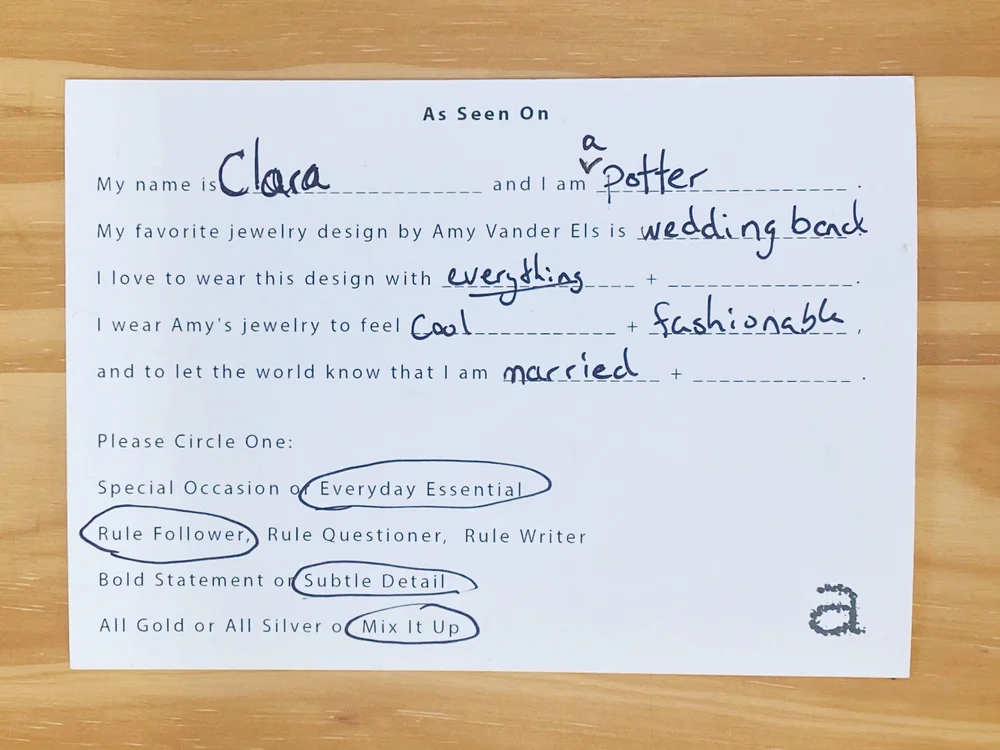 As Seen On
My name is Clara and I am a potter.
My favorite jewelry design by Amy Vander Els is wedding band
I love to wear this design with everything + .
I wear Amy's jewelry to feel Cool + fashionable,
and to let the world know that I am married + .
Please Circle One:
Special Occasion or Everyday Essential
Rule Follower, Rule Questioner, Rule Writer
Bold Statement or Subtle Detail
All Gold or All Silver or Mix It Up
a